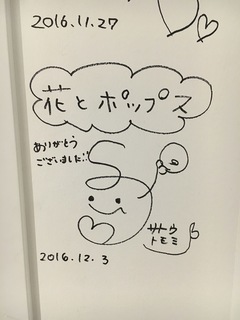 2016.11.27
花とポップス
ありがとう
ございました!!
サトウ
トモミ
2016.12.3